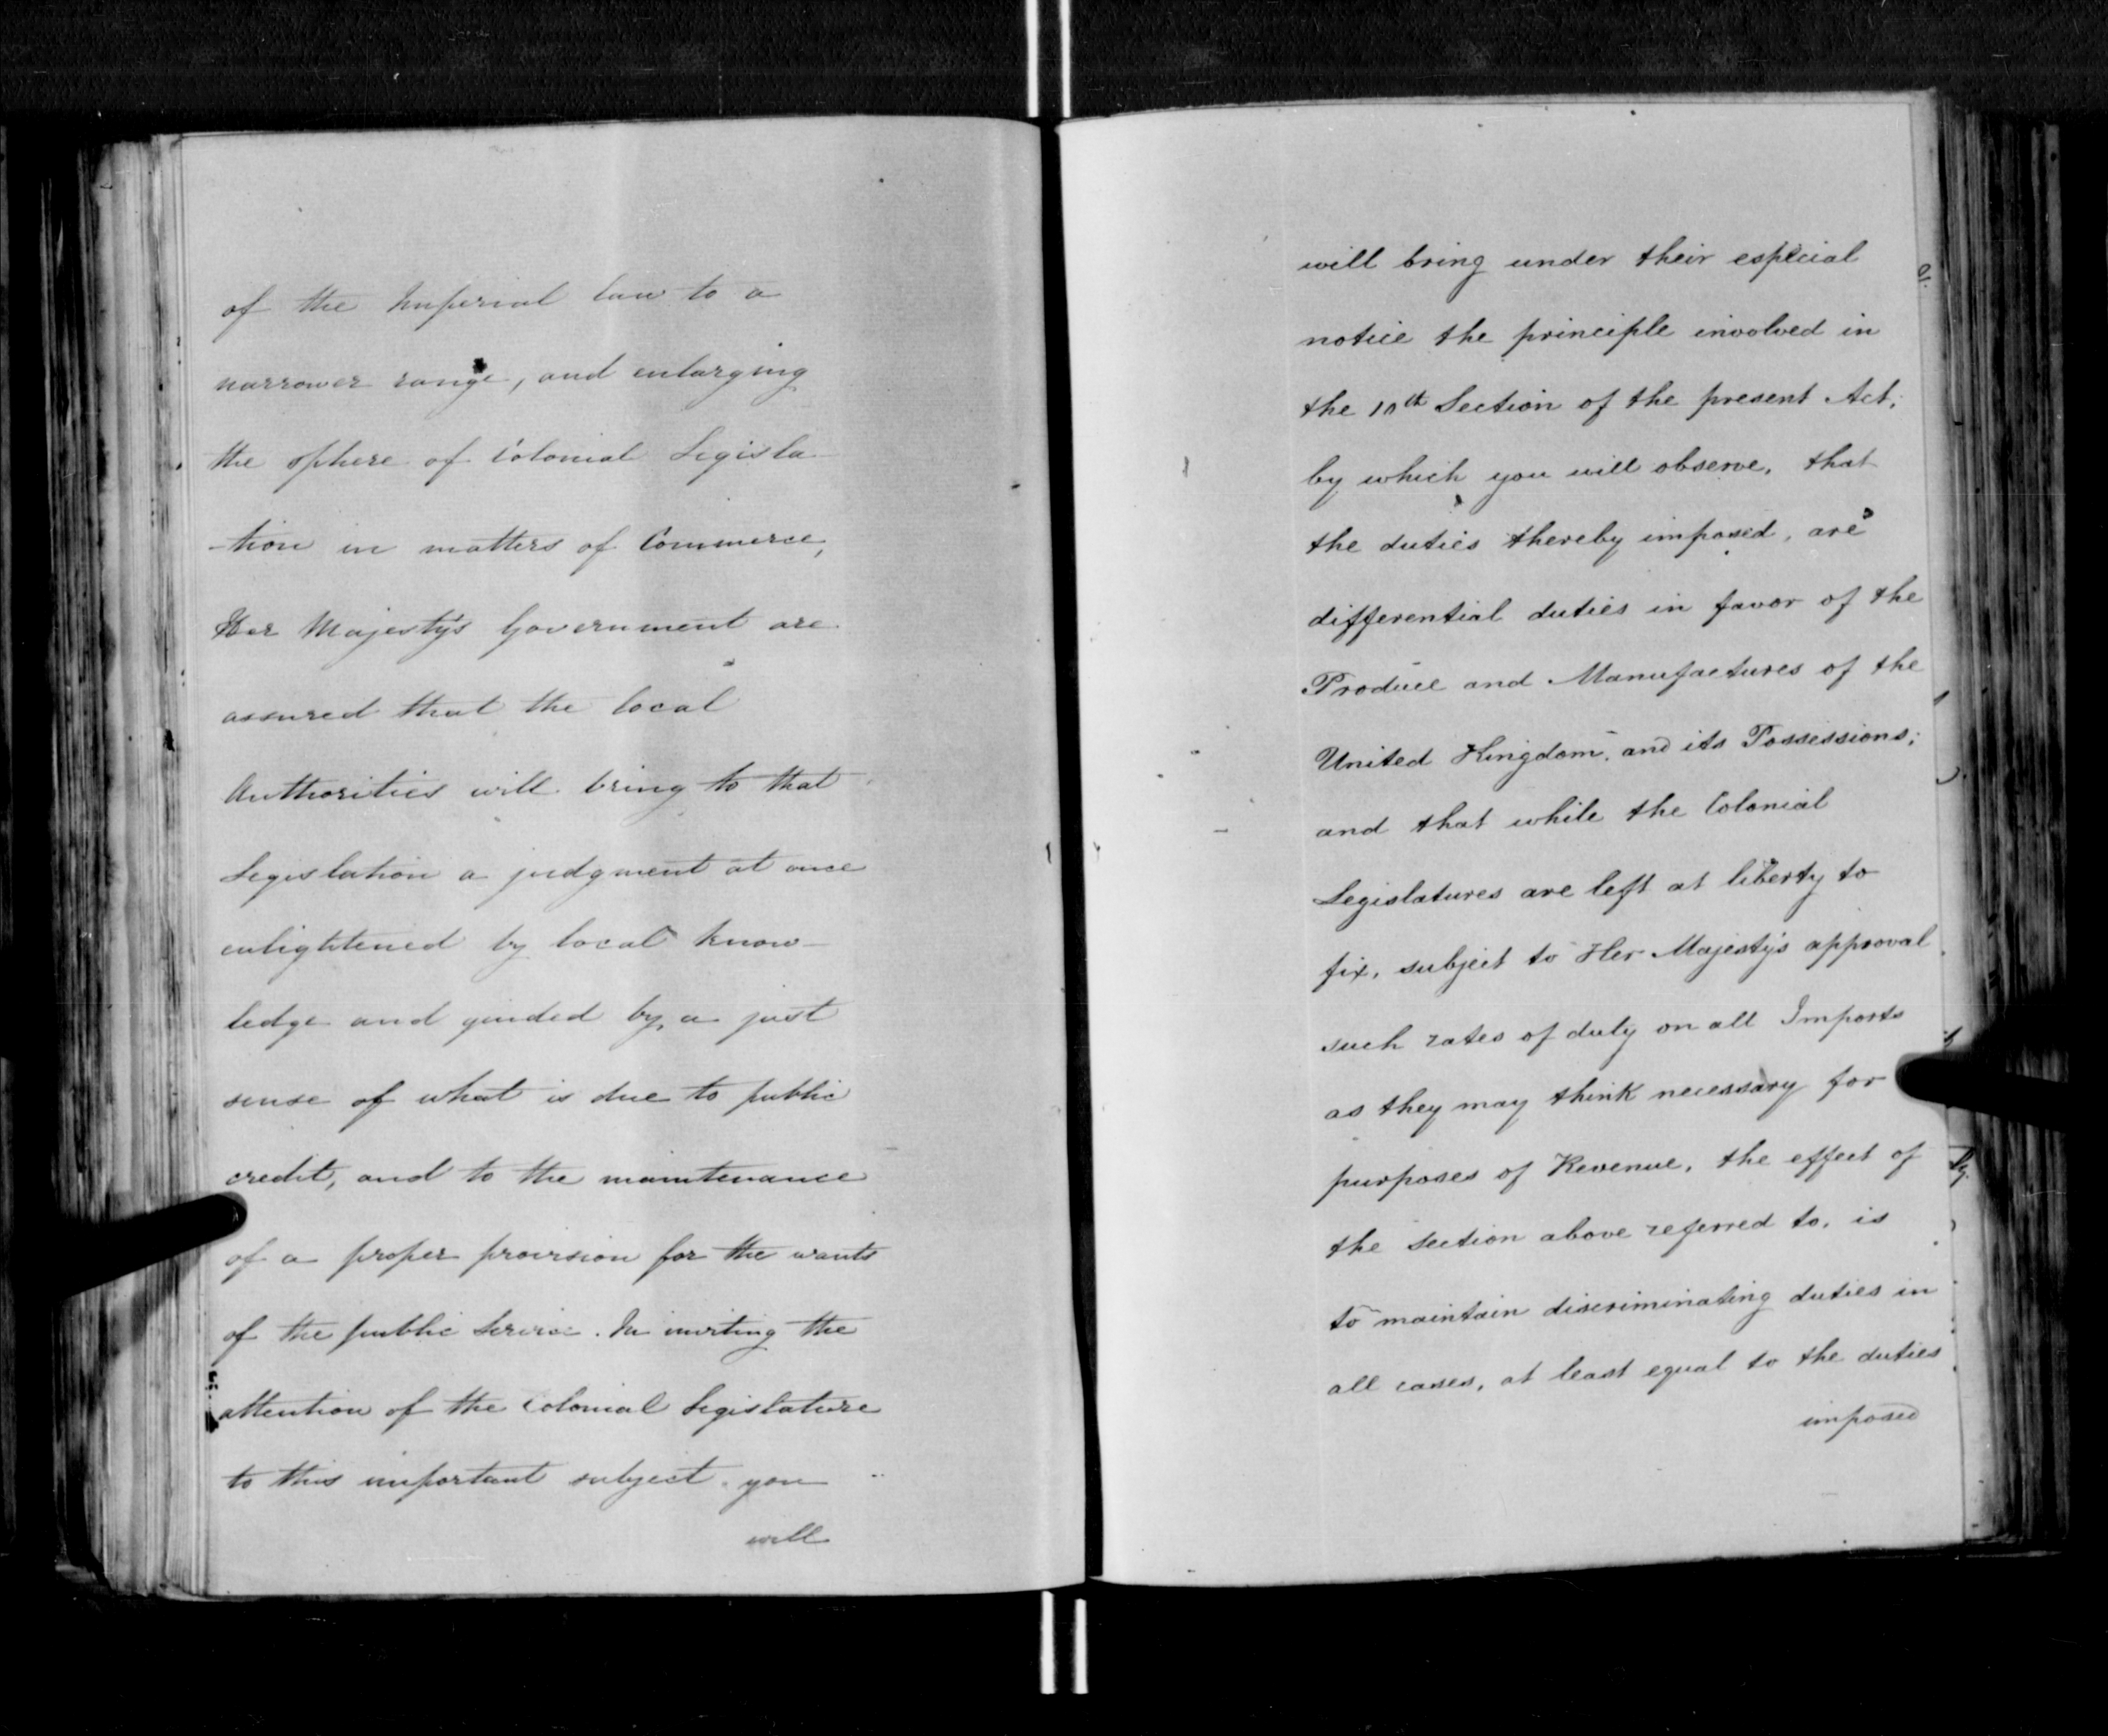 of the Imperial law to a
narrower range, and enlarging
the sphere of Colonial Legisla-
-tion in matters of Commerce,
Her Majesty's Government are
assured that the local
Authorities will bring to that
Legislation a judgment at once
enlightened by local know-
ledge and guided by a just
sense of what is due to public
credit, and to the maintenance
of a proper provision for the wants
of the public Service. In inviting the
attention of the Colonial Legislature
to this important subject, you
will
will bring under their especial
notice the principle involved in
the 10th Section of the present Act;
by which you will observe, that
the duties thereby imposed, are
differential duties in favor of the
Produce and Manufactures of the
United Kingdom, and its Possessions;
and that while the Colonial
Legislatures are left at liberty to
fix, subject to Her Majesty's approval
such rates of duty on all Imports
as they may think necessary for
purposes of Revenue, the effect of
the Section above referred to, is
to maintain discriminating duties in
all cases, at least equal to the duties
imposed